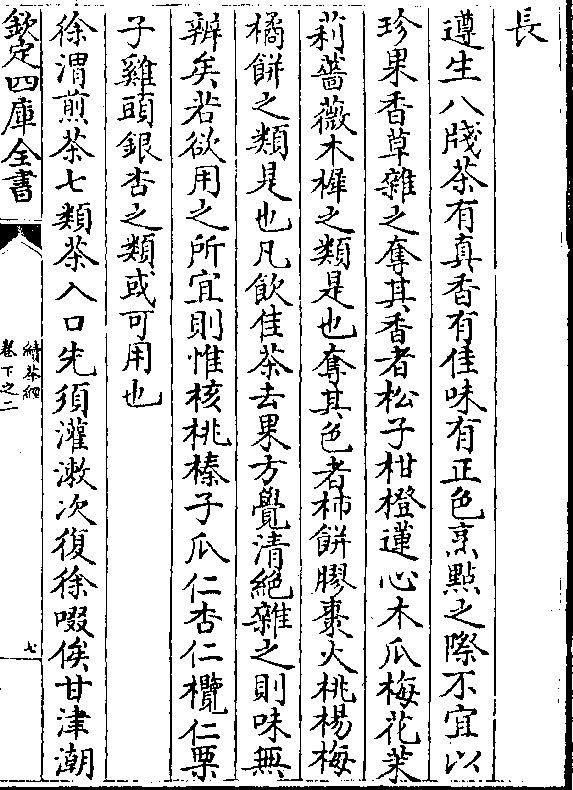 長
遵生八牋茶有真香有佳味有正色烹點之際不宜以
珍果香草雜之奪其香者松子柑橙蓮心木瓜梅花茉
莉薔薇木樨之類是也奪其色者柿餅膠棗火桃楊梅
橘餅之類是也凡飲佳茶去果方覺清絶雜之則味無
辨矣若欲用之所宜則惟核桃榛子瓜仁杏仁欖仁栗
子雞頭銀杏之類或可用也
徐渭煎茶七類茶入口先須灌漱次復徐啜俟甘津潮
欽定四庫全書
續茶經
卷下之二
七